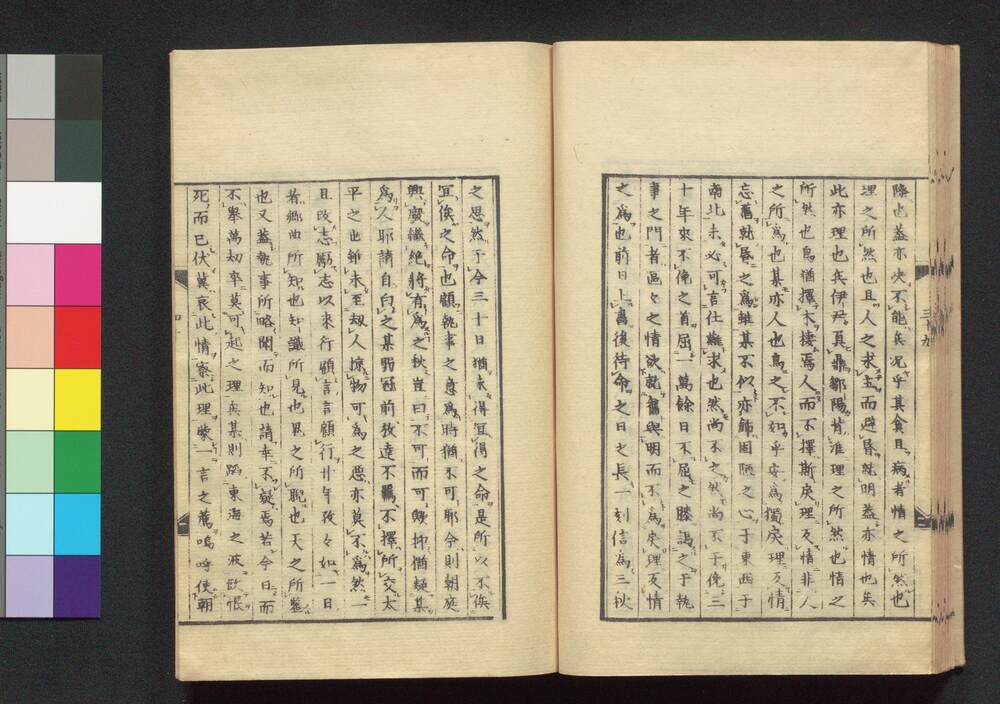 降也蓋亦决不能矣况乎其貪且病者情之所然也
理之所然也且人之求主而避昏就明蓋亦情也矣
此亦理也矣伊尹負鼎鄒陽背淮理之所然也情之
所然也鳥猶擇木棲焉人而不擇斯戾理反情非人
之所爲也某亦人也鳥之不如乎安爲獨戾理反情
忘舊就昏之爲雖某不似亦飾固陋之心于東西于
南北未必可言仕難求也然尚不之然尚不于俛三
十年來不俛之首屈一萬餘日不屈之膝謁之于執
事之門者區々之情欲就舊與明而不爲戾理反情
之爲也前日上書後待命之日之長一刻信爲三秋
之思然于今三十日猶未得宜得之命是所以不俟
宜俟之命也顧執事之意爲時猶不可耶今則朝庭
興廢繼絶將有爲之秋豈曰不可而可歟抑猶疑某
爲人耶請自白之某弱冠前放達不羈不擇所交太
平之世雖未至刧人掠物可爲之悪亦莫不爲然一
旦改志勵志以来行顧言言顧行廿年孜々如一日
者郷曲所知也知識所見也鬼之所睨也天之所鑒
也又蓋執事所略聞而知也請幸不疑焉若今日而
不擧萬刧率莫可起之理矣某則蹈東海之波飲恨
死而已伏冀哀此情察此理蒙一言之薦嗚呼使朝
三十九